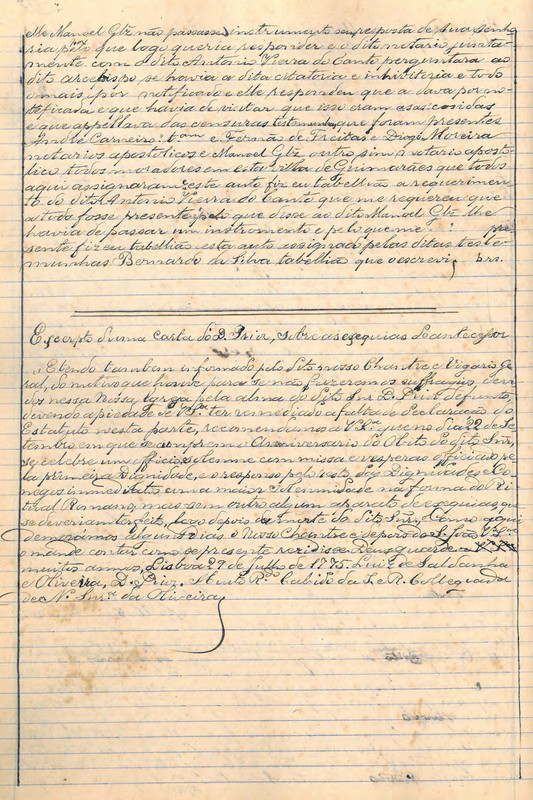 elle Manoel Glz não passasse instrumento sem resposta de sua senho
ria p que logo queria responder e o dito notario junta-
mente com o dito Antonio Vieira do Canto perguntara ao
dito arcebispo se havia a dita citatoria e inhibitoria e todo
o mais por notificado e elle respondeu que a dava por no-
teficada e que havia de vistar que isso eram as cosidas
e que appellava das censuras testemunhas que foram presentes
André Carneiro e Fernão de Freitas e Diogo Moreira
notarios apostolicos e Manoel Glz outro sim notario aposto-
lico todos moradores em esta villa de Guimarães que todos
aqui assignaram este auto fiz eu tabellião a requerimen-
to do dito Antonio Vieira do Canto que me requereu que
a todo fosse presente pelo que disse ao dito Manoel Glz lhe
havia de passar um instromento e pelo que me pre
sente fiz eu tabellião esta auto assignado pelas ditas teste-
munhas Bernardo da Silva tabellião que o escrevi, brs.
Excerpto d'uma carta do D. Prior, sobre as exequias do antecessor
Estando tambem informado pelo dito nosso Chantre e Vigario Ge
ral, do motivo que houve para se não fazerem suffragios, de
viz nessa Nossa Igreja pela alma do dito Snr D. Prior defunto,
devendo a piedade de V. ter remediado a falta de declaração do
Estatuto nesta parte, recomendamos a V. que no dia 22 de Se
tembro em que se cumprem o Anniversario do Obito do dito Snr,
se celebre um officio solemne com missa e vesperas officiado pe
la primeira Dignidade, e o responso pelo resto das Dignidades e Co
negos immediatos com a maior solemnidade na forma do Ri-
tual Romano, mais sem outro algum aparato de exequias que
se deveriam ter feito, logo depois da morte do dito Snr, Como aqui
demoramos alguns dias o Nosso Chantre e depois do S. João V.
o mande contar como de presente rezidisse Deus guarde a V.
muitos annos, Lisboa 29 de Julho de 1775. Luiz de Saldanha
e Oliveira, D. Prior, Muito R. Cabido da I. e R. Collegiada
de N. Snr.ª da Oliveira